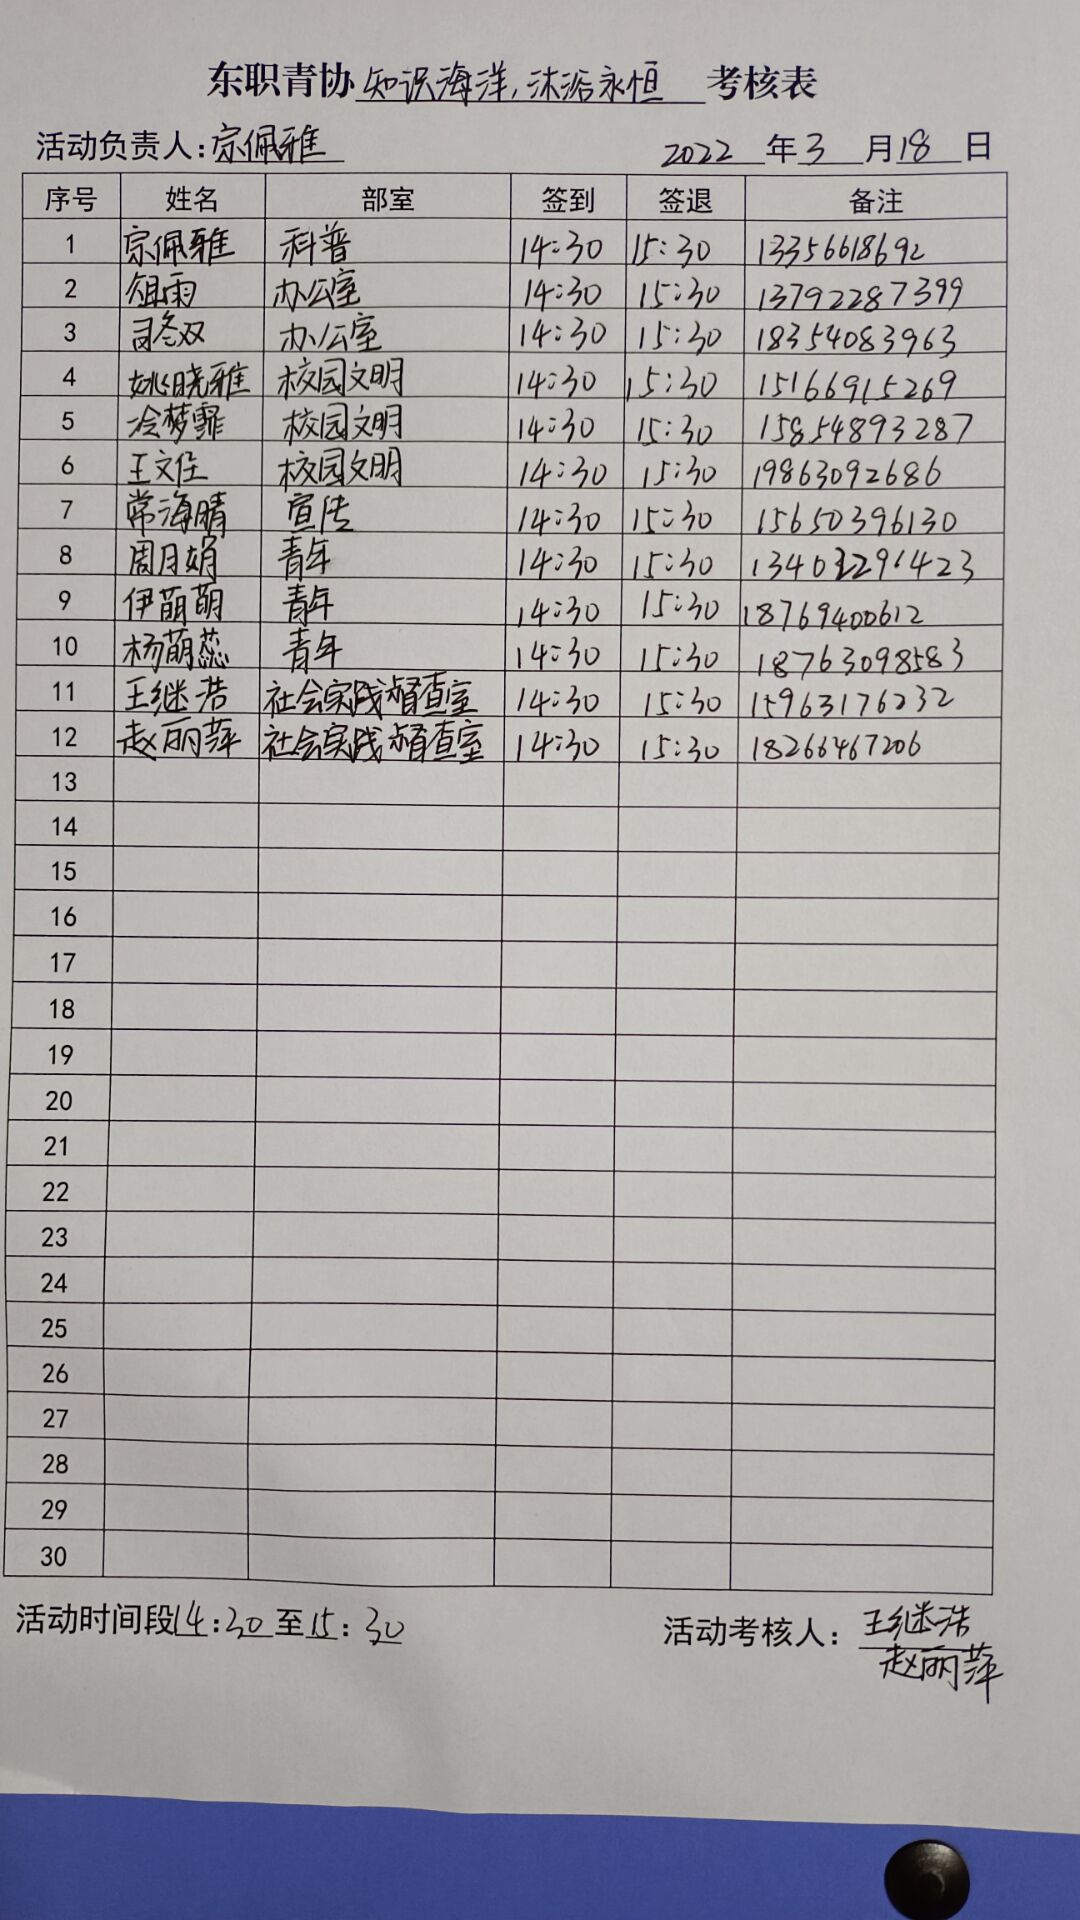 东职青协知识海洋,沐浴永恒 考核表
活动负责人:宗佩雅 2022 年 3 月 18 日
序号 姓名 部室 签到 签退 备注
1 宗佩雅 科普 14:30 15:30 13356618692
2 雨 办公室 14:30 15:30 13792287399
3 司冬双 办公室 14:30 15:30 18354083963
4 姚晓雅 校园文明 14:30 15:30 15166915269
5 冷梦霏 校园文明 14:30 15:30 15854893287
6 王文佳 校园文明 14:30 15:30 19863092686
7 常海晴 宣传 14:30 15:30 15650396130
8 周月娟 青年 14:30 15:30
9 伊萌萌 青年 14:30 15:30 18769400612
10 杨萌蕊 青年 14:30 15:30 18763098583
11 王继浩 社会实践督查室 14:30 15:30 15963176232
12 赵丽萍 社会实践督查室 14:30 15:30 18266467206
13
14
15
16
17
18
19
20
21
22
23
24
25
26
27
28
29
30
活动时间段14:30至15:30 活动考核人: 王继浩
赵丽萍